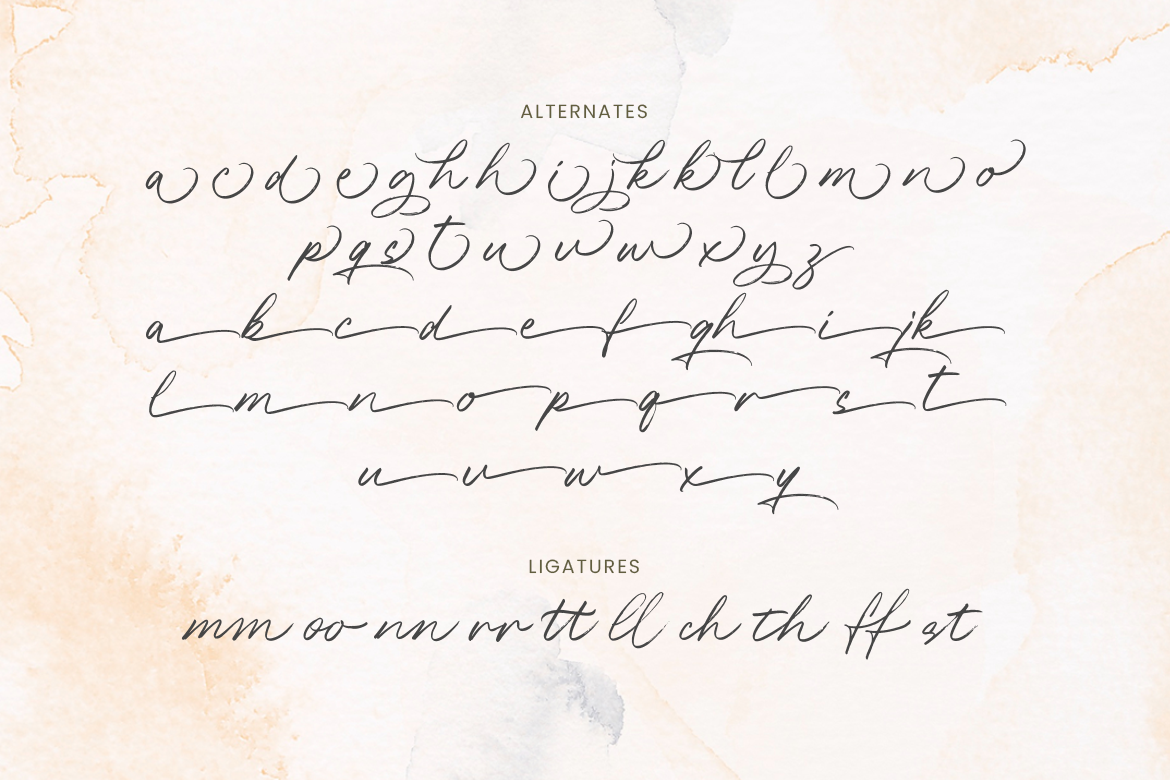 ALTERNATES
a c d e g h h i j k k l l m n o
p q s t u v w x y z
a b c d e f g h i j k
l m n o p q r s t
u v w x y
LIGATURES
mm oo nn rr tt ll ch th ff st